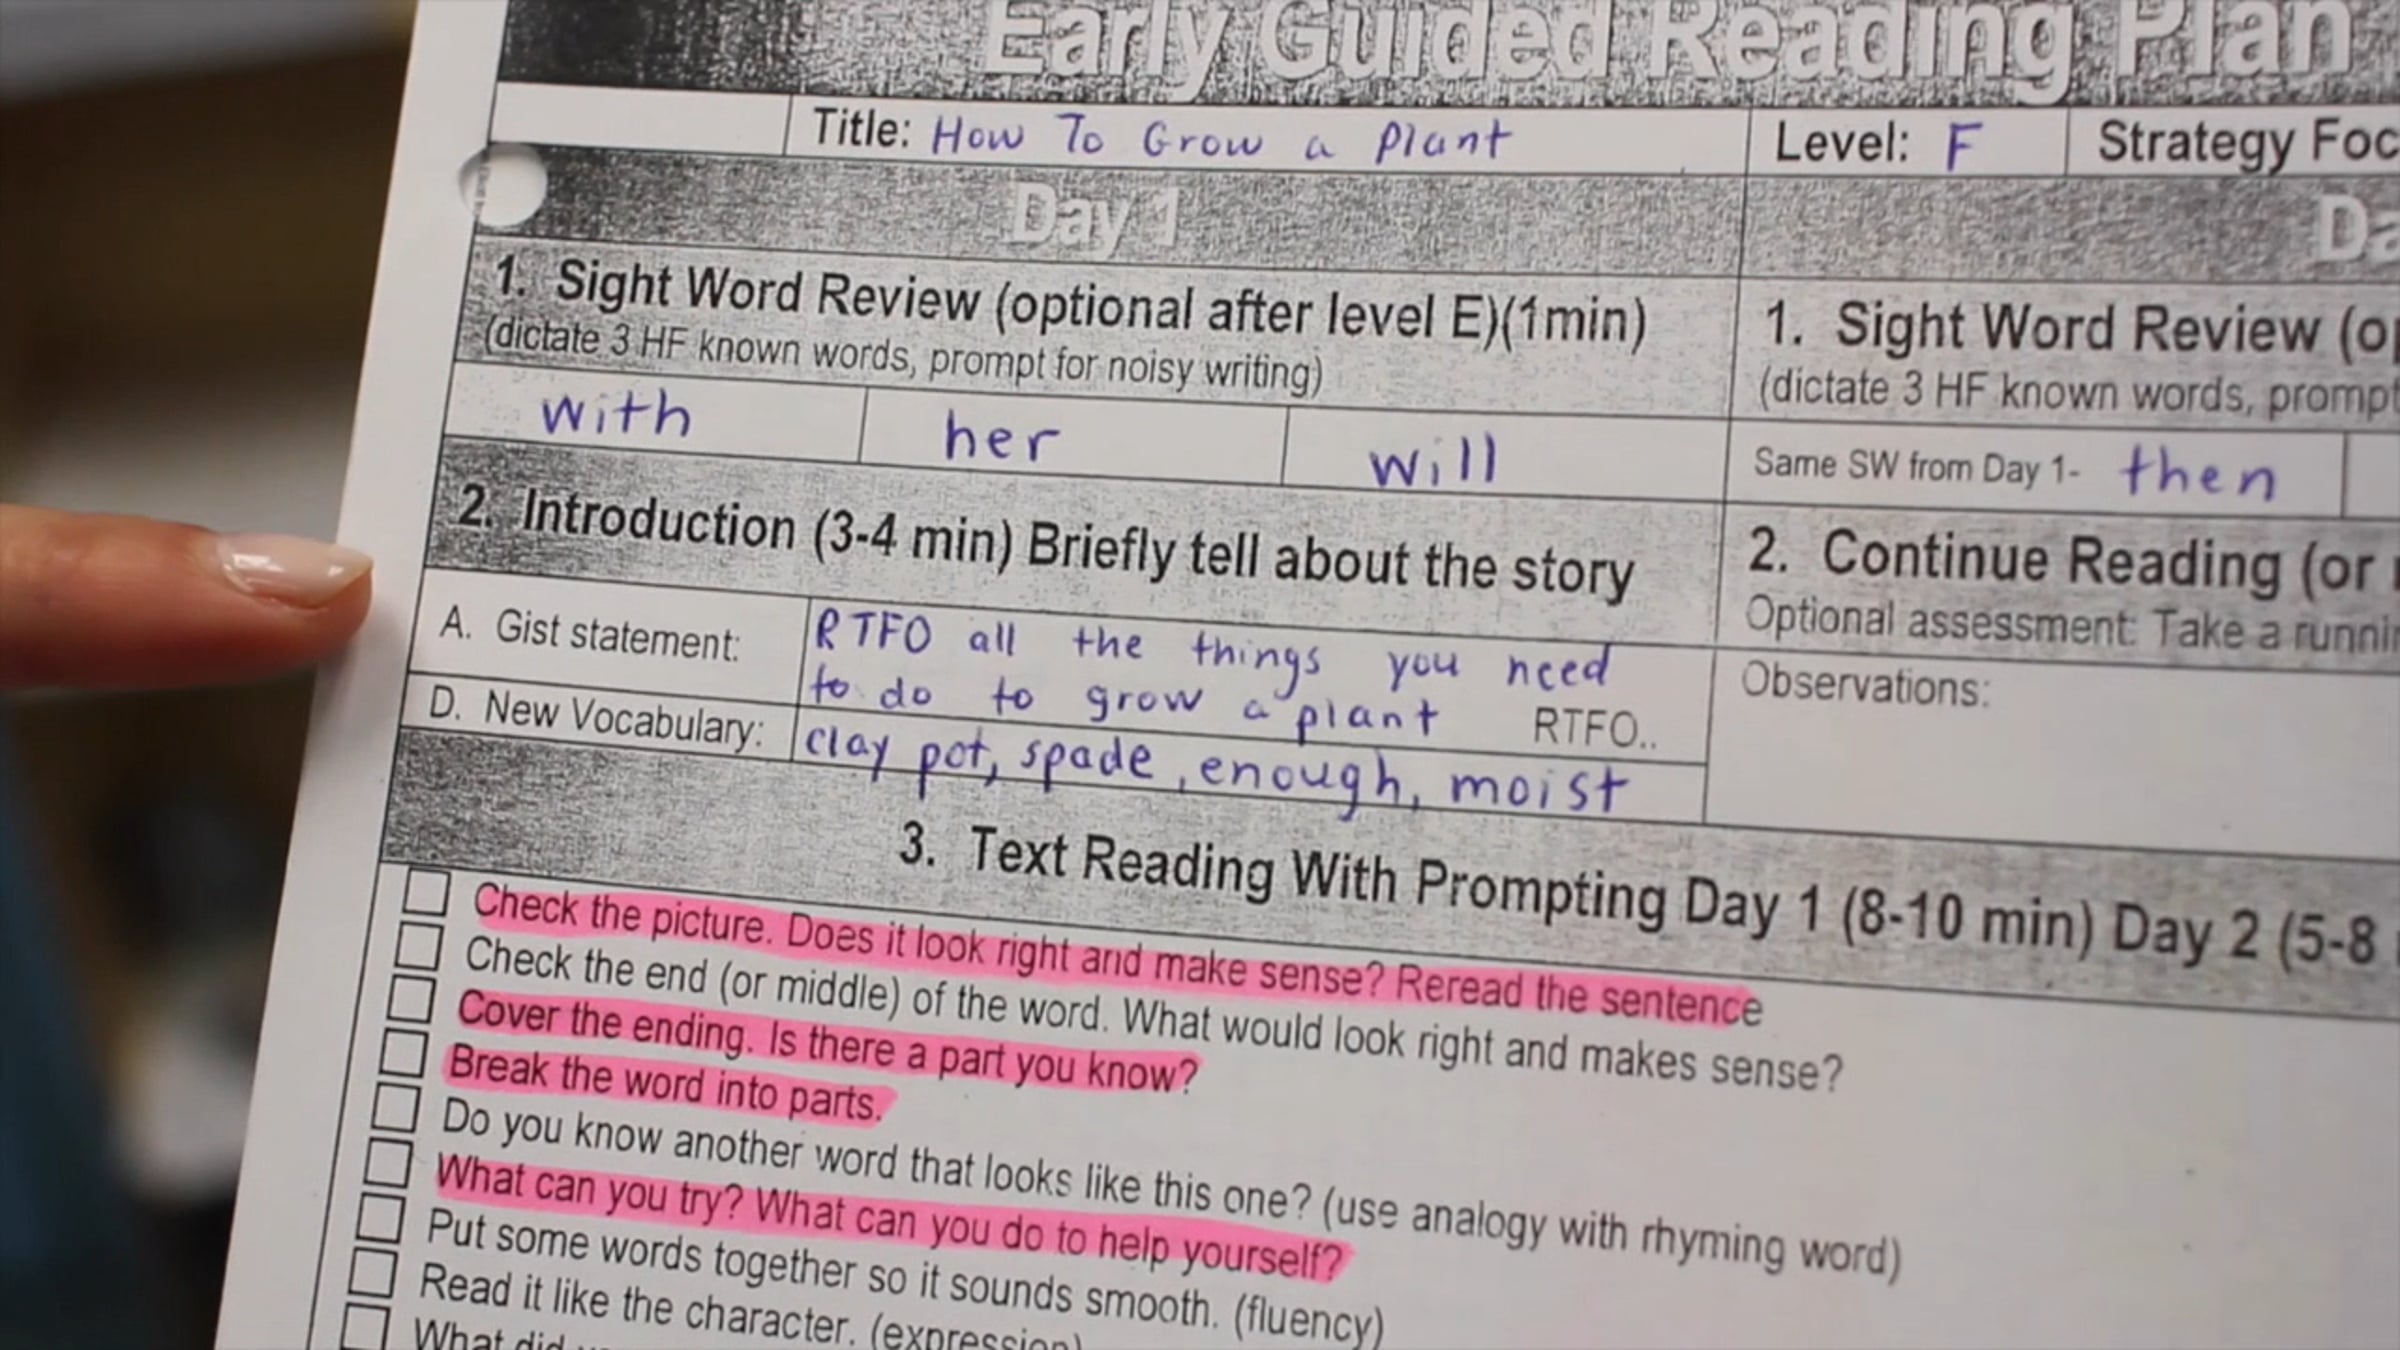 Early Guided Reading Plan
Title: How To Grow a plant
Level: F
Strategy
Day 1
1. Sight Word Review (optional after level E)(1min)
(dictate 3 HF known words, prompt for noisy writing)
with her will
2. Introduction (3-4 min) Briefly tell about the story
A. Gist statement: RTFO all the things you need
to do to grow a plant RTFO..
D. New Vocabulary: clay pot, spade, enough, moist
1. Sight Word Review
(dictate 3 HF known words,
Same SW from Day 1- then
2. Continue Reading (or
Optional assessment: Take a
Observations:
3. Text Reading With Prompting Day 1 (8-10 min) Day 2 (5-8
Check the picture. Does it look right and make sense? Reread the sentence
Check the end (or middle) of the word. What would look right and makes sense?
Cover the ending. Is there a part you know?
Break the word into parts.
Do you know another word that looks like this one? (use analogy with rhyming word)
What can you try? What can you do to help yourself?
Put some words together so it sounds smooth. (fluency)
Read it like the character. (expression)
What did